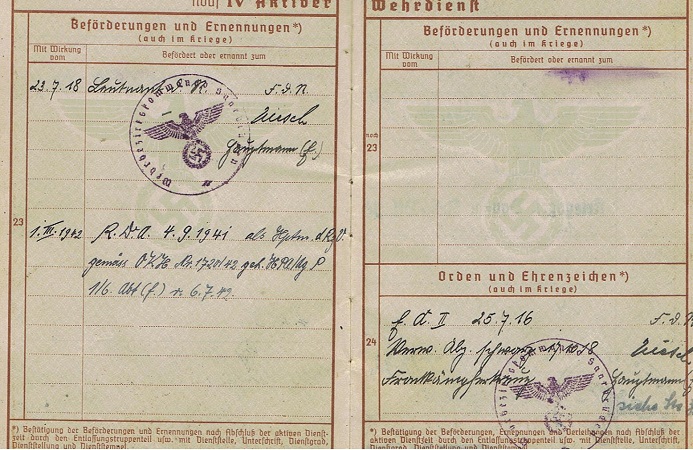 IV Aktiver
Beförderungen und Ernennungen*)
(auch im Kriege)
Mit Wirkung vom
Befördert oder ernannt zum
23.7.18 Leutnant d. R. F. d. R.
Hauptmann (E.)
23
1.III.1942 R.D.A. 4.9.1941 als Hptm. d. R.z.V.
gemäss OKH Nr. 1720/42 geh.
Abt (E.) v. 6.7.42.
*) Bestätigung der Beförderungen und Ernennungen nach Abschluß der aktiven Dienst-
zeit durch den Entlassungstruppenteil usw. mit Dienststelle, Unterschrift, Dienstgrad,
Dienststellung und Dienststempel.
Wehrdienst
Beförderungen und Ernennungen*)
(auch im Kriege)
Mit Wirkung vom
Befördert oder ernannt zum
noch
23
Orden und Ehrenzeichen*)
(auch im Kriege)
E. K. II 25.7.16 F. d. R.
24
Verw. Abz. schwarz 1918
Frontkämpferkreuz Hauptmann
*) Bestätigung der Beförderungen, Ernennungen und Verleihungen nach Abschluß der
aktiven Dienstzeit durch den Entlassungstruppenteil usw. mit Dienststelle, Unterschrift,